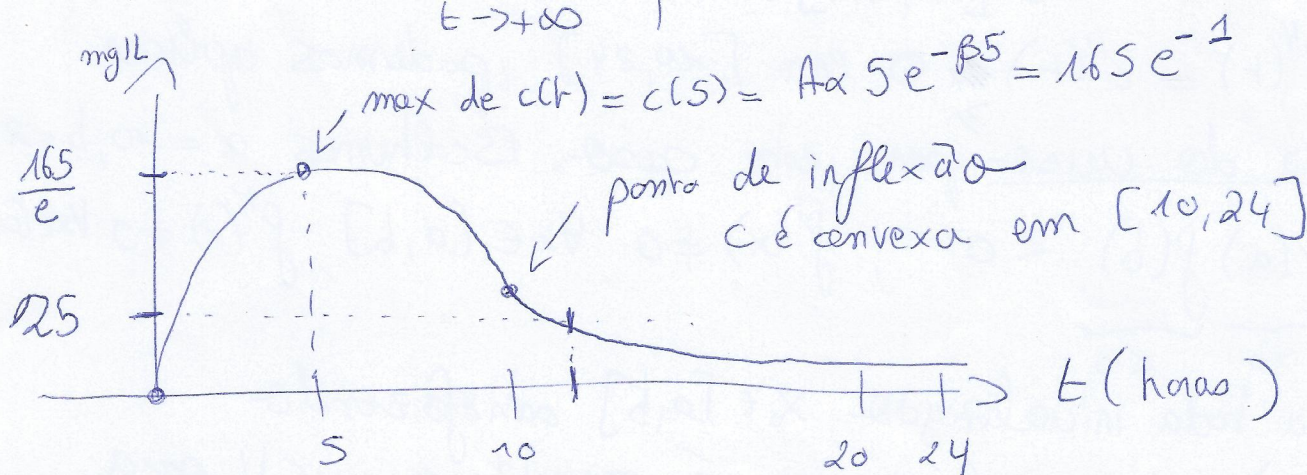 t → +∞
mg/L
max de c(t) = c(5) = Aα 5 e^{-β5} = 165 e^{-1}
165/e
ponto de inflexão
c é convexa em [10,24]
25
t (horas)
5 10 20 24